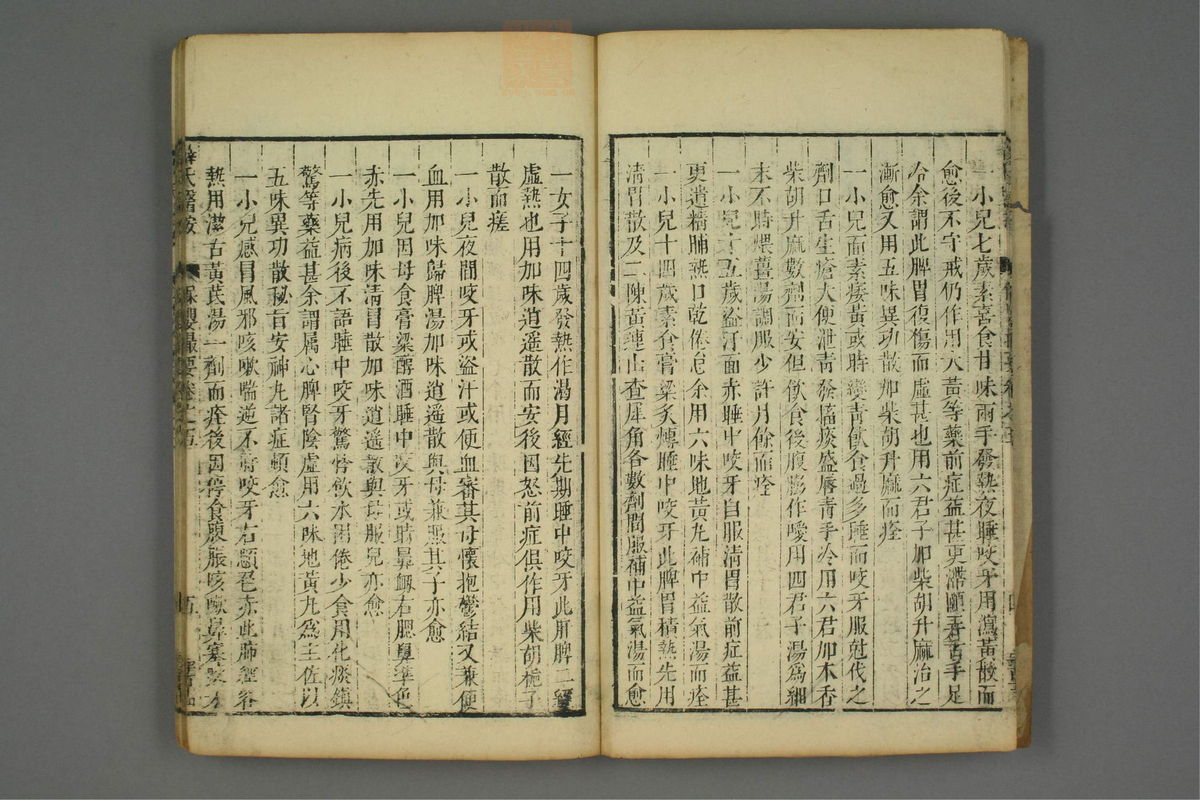 一小兒七歲素喜食甘味兩手發熱夜睡咬牙用瀉黃散而
愈後不守戒仍作用大黃等藥前症益甚更滯頤弄舌手足
冷余謂此脾胃復傷而虛甚也用六君子加柴胡升麻治之
漸愈又用五味異功散加柴胡升麻而痊
一小兒面素痿黃或時變青飲食過多睡而咬牙服尅伐之
劑口舌生瘡大便泄青發搐痰盛唇青手冷用六君加木香
柴胡升麻數劑而安但飲食後腹膨作噯用四君子湯為細
末不時煨薑湯調服少許月餘而痊
一小兒十五歲盜汗面赤睡中咬牙自服清胃散前症益甚
更遺精晡熱口乾倦怠余用六味地黃丸補中益氣湯而痊
一小兒十四歲素食膏粱炙煿睡中咬牙此脾胃積熱先用
清胃散及二陳黃連山查犀角各數劑間服補中益氣湯而愈
一女子十四歲發熱作渴月經先期睡中咬牙此肝脾二經
虛熱也用加味逍遥散而安後因怒前症俱作用柴胡梔子
散而瘥
一小兒夜間咬牙或盜汗或便血審其母懷抱鬱結又兼便
血用加味歸脾湯加味逍遥散與母兼服其子亦愈
一小兒因母食膏粱醇酒睡中咬牙或時鼻衂右腮鼻準色
赤先用加味清胃散加味逍遥散與母服兒亦愈
一小兒病後不語睡中咬牙驚悸飲水困倦少食用化痰鎮
驚等藥益甚余謂属心脾腎陰虛用六味地黃丸為主佐以
五味異功散秘旨安神丸諸症頓愈
一小兒感冒風邪咳嗽喘逆不時咬牙右顋色赤此肺經
熱用潔古黃芪湯一劑而痊後因停食腹脹咳嗽鼻塞
薛氏醫按
保嬰撮要卷之五